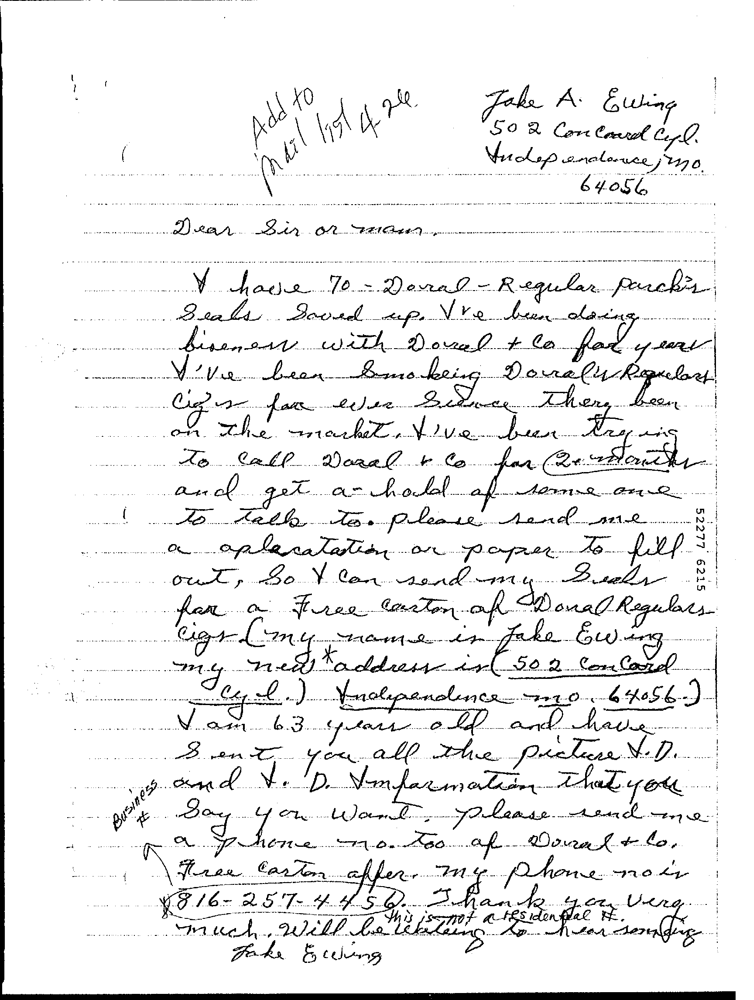 Add to
mail list 4-26.
Jake A. Ewing
502 Concord Cyl.
Independence, mo.
64056
Dear Sir or mam.
I have 70 - Doral - Regular parck's
Seals Saved up. I've been doing
biseness with Doral + Co for years
I've been Smokeing Doral's Regulars
Cig's for ever Sience they been
on the market. I've been trying
to call Doral + Co for (2. months
and get a-hold of some one
to talk to. please send me
a aplacatation or paper to fill
out, So I can send my Seals
for a Free carton of Doral Regulars
cigs. (my name is Jake Ewing
my new *address is (502 Concord
Cyl.) Independence mo. 64056.)
I am 63 years old and have
Sent you all the picture I.D.
and I. D. Imformation that you
Say you want. please send me
a phone no. too of Doral + Co.
Free Carton offer. my phone no is
816-257-4456. Thank you very
this is not a residential #.
much. Will be waiteing to hear
Jake Ewing
Business
#
52277 6215